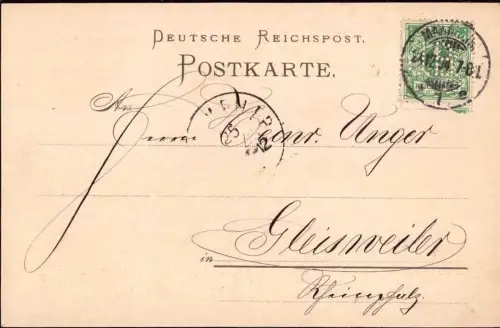 Deutsche Reichspost.
Postkarte.
An
Herrn Heinr. Unger
25
in Gleisweiler
Rheinpfalz.